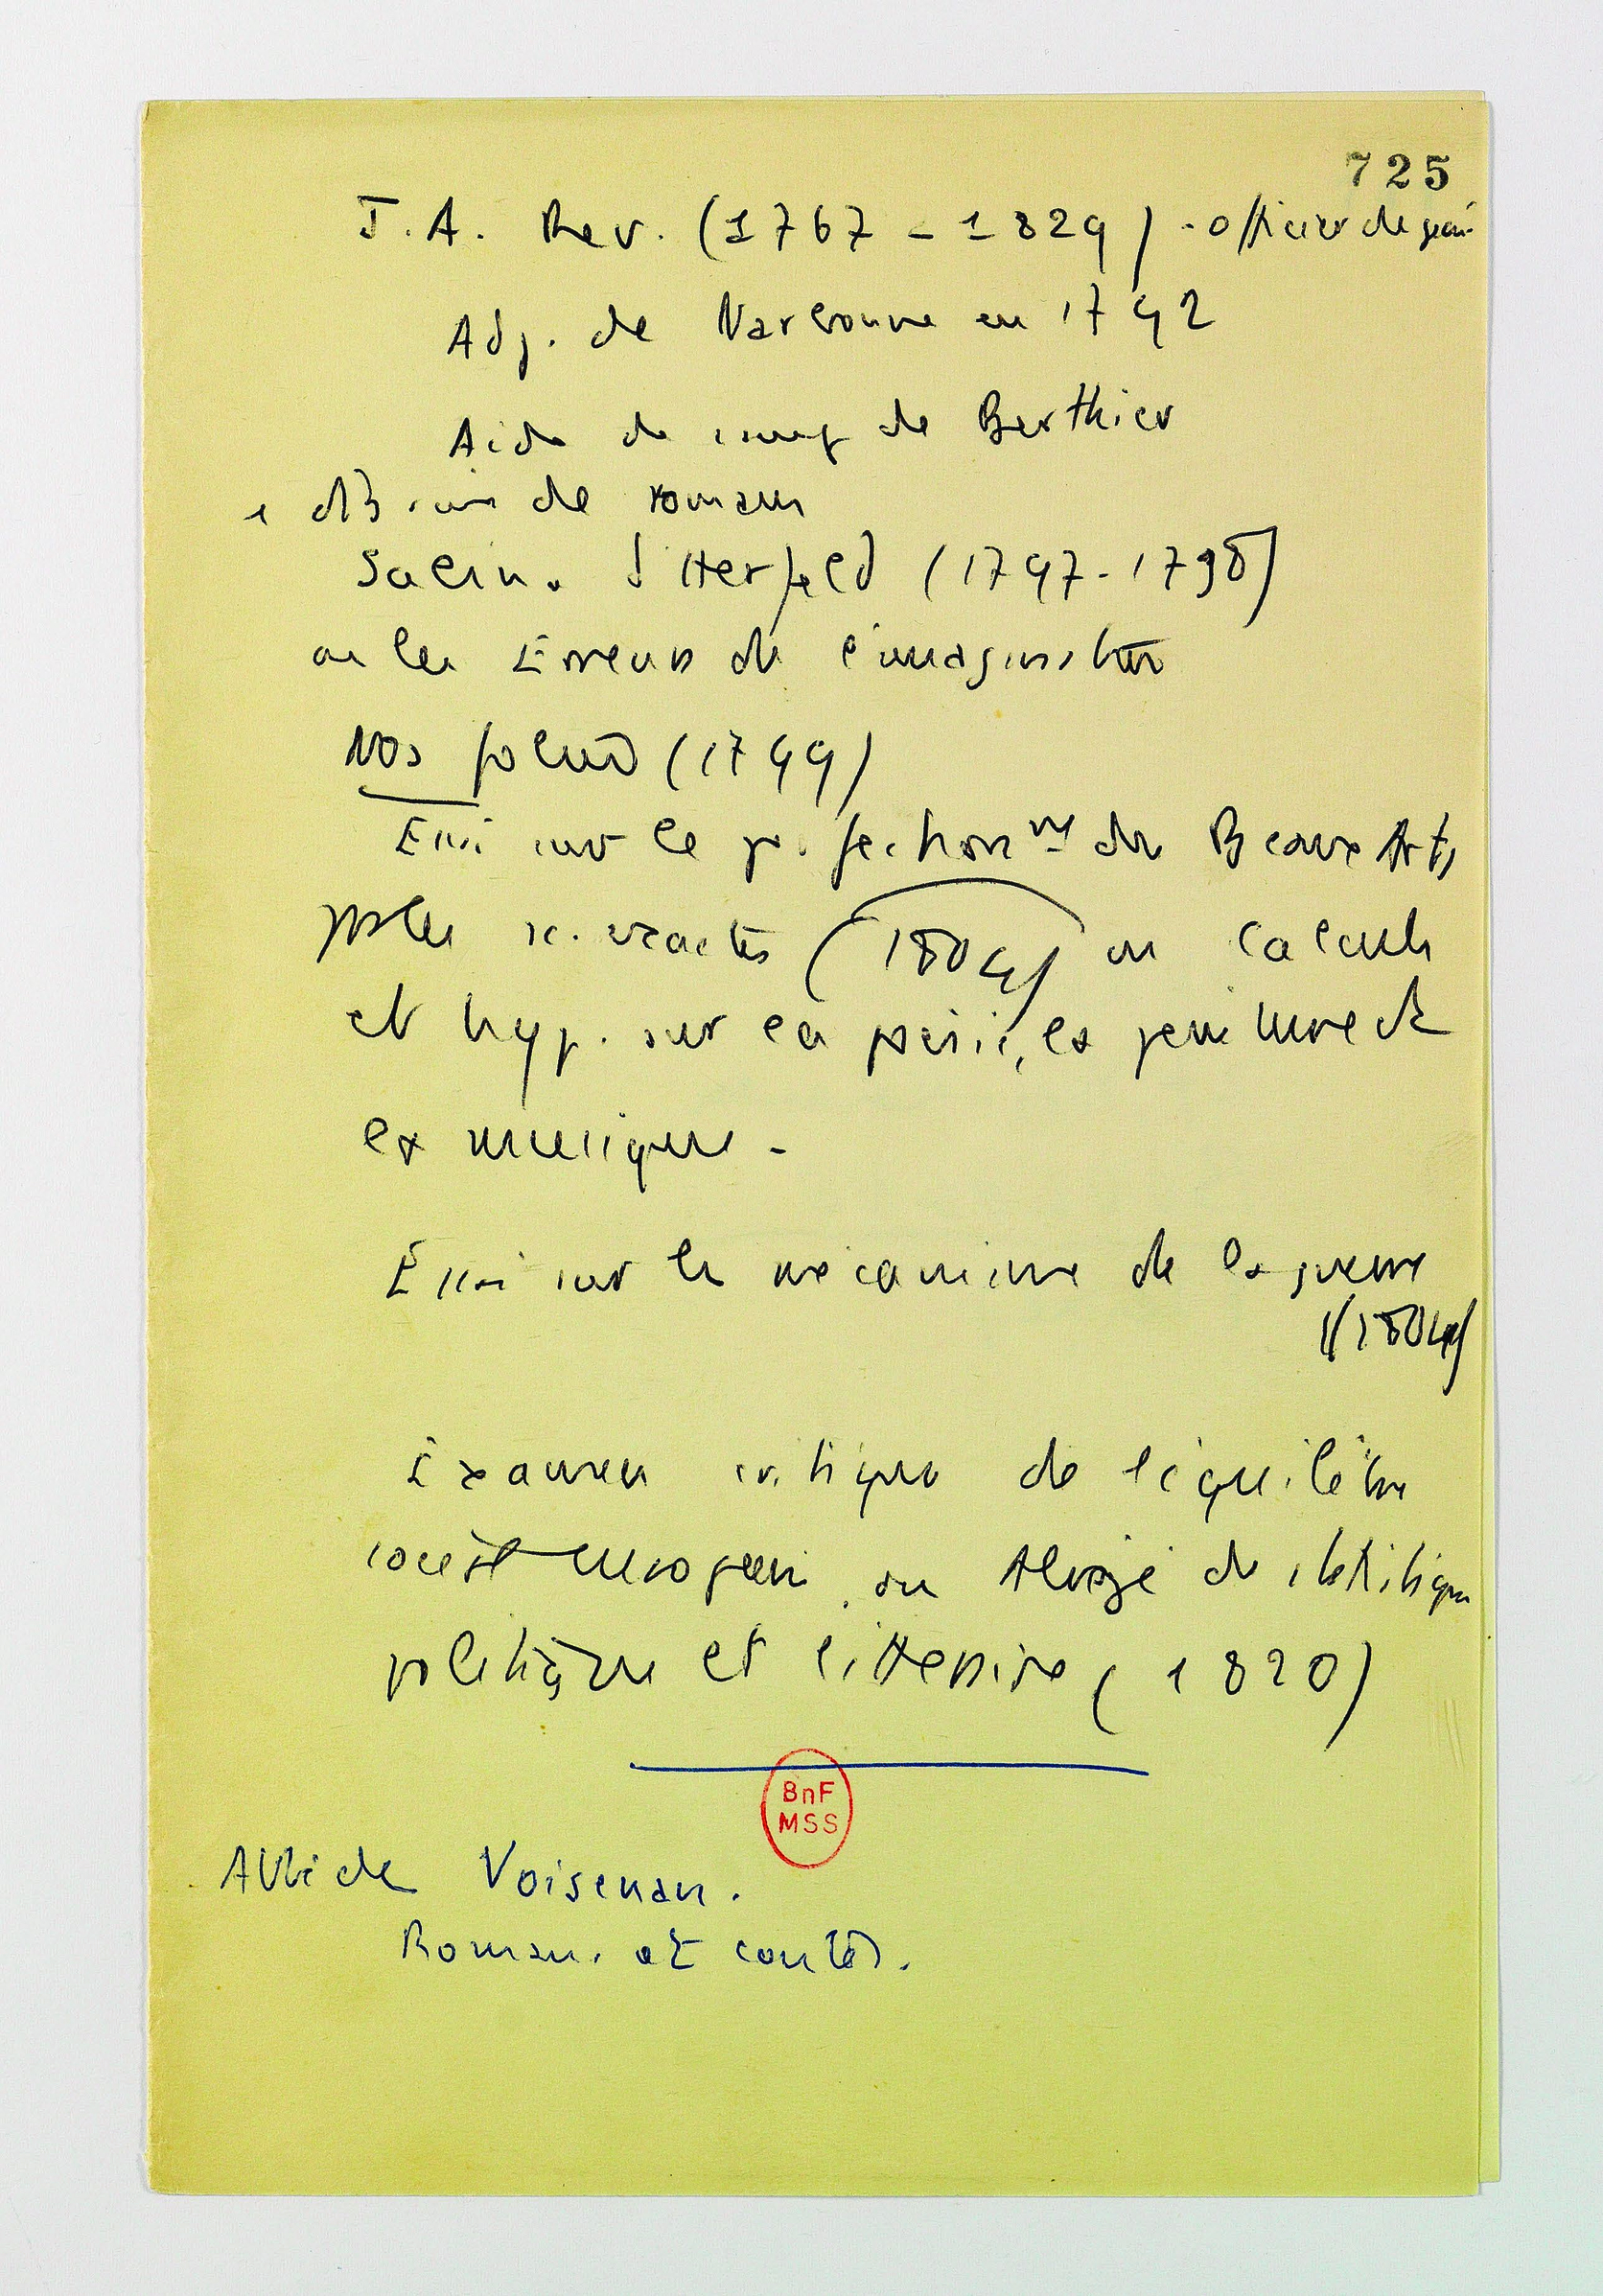 725
J. A. Rev. (1767 - 1829) - officier de géni
Adj. de Narbonne en 1792
Aide de camp de Berthier
de romans
Sabin. d'Herfeld (1797-1798)
ou les Erreurs de l'imagination
Nos folies (1799)
Essai sur le perfectionnt des Beaux Arts
par les sc. exactes (1804) ou calculs
et hyp. sur la poésie, la peinture et
la musique -
Essai sur le mécanisme de la guerre
(1804)
Examen critique de l'équilibre
social européen, ou Abrégé de statistique
politique et littéraire (1820)
BnF
MSS
Abbé de Voisenon.
Romans et contes.